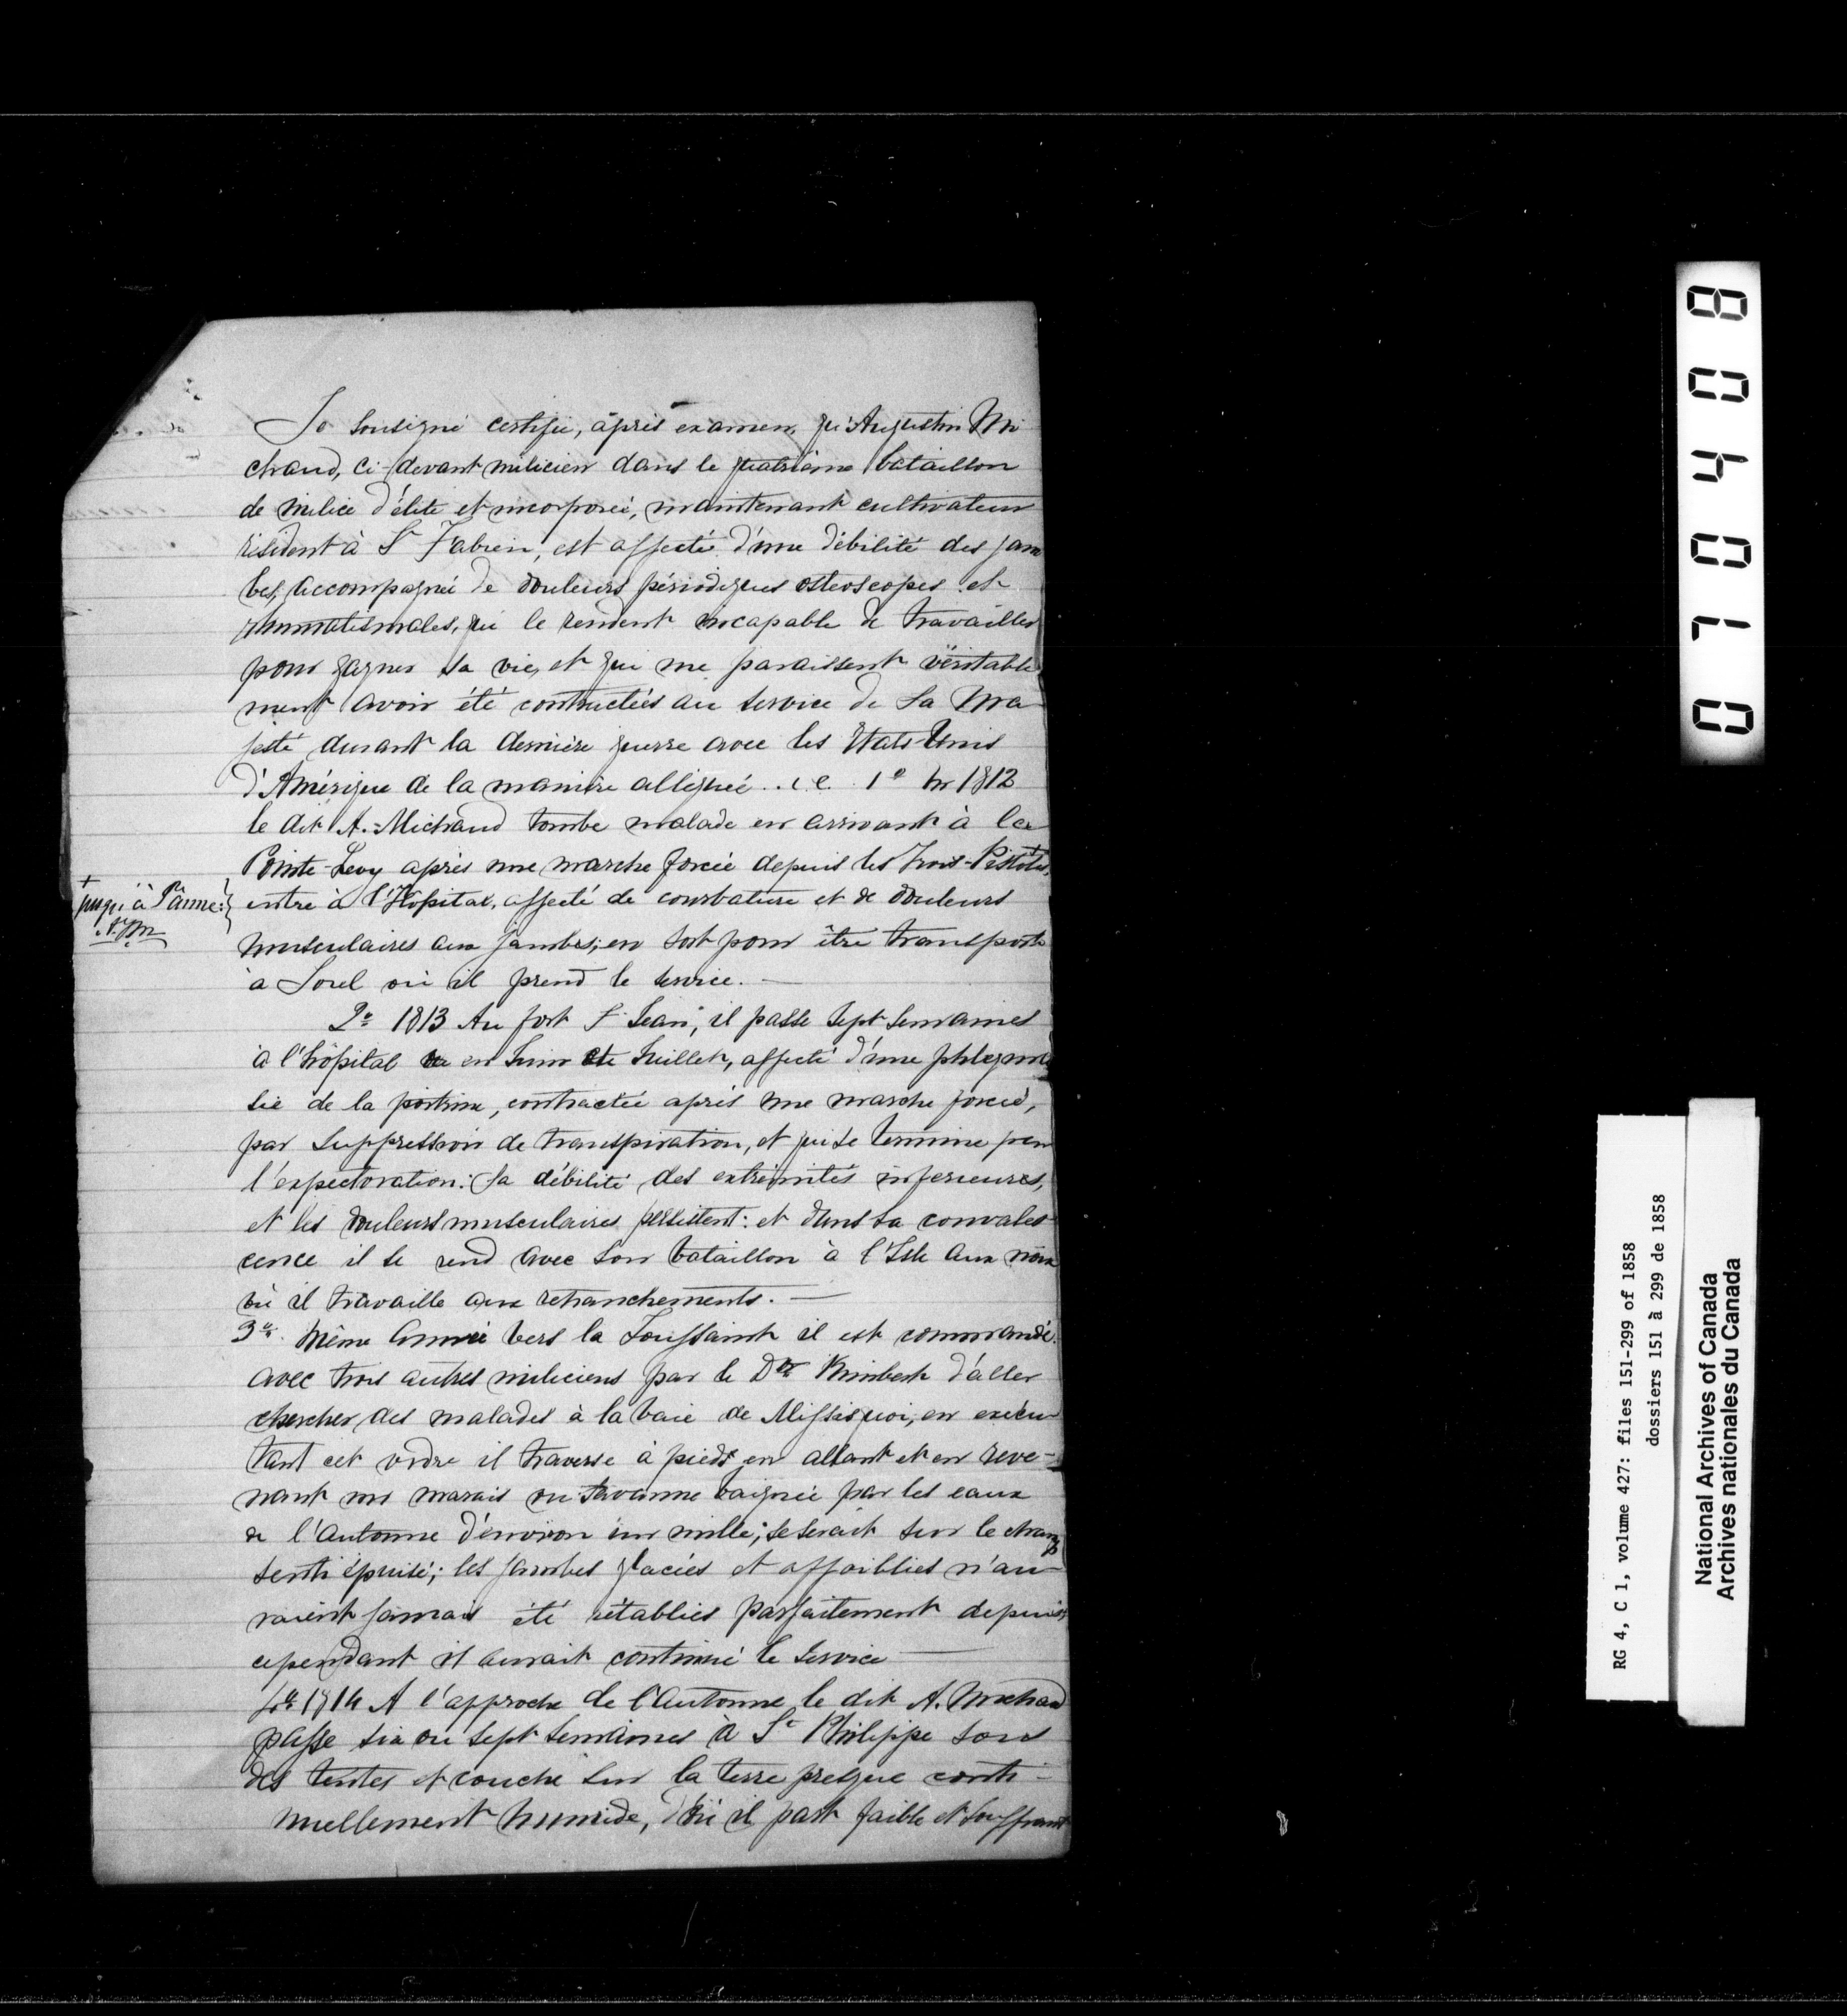 Je sousigné certifie, après examen, qu'Augustin Mi
chaud, ci-devant milicien dans le quatrième bataillon
de milice d'élite et incorporée, maintenant cultivateur
résident à St Fabien, est affecté d'une débilité des jam
bes, accompagnée de douleurs périodiques osteoscopes et
rhumatismales, qui le rendent incapable de travailler
pour gagner sa vie, et qui me paraissent véritable
ment avoir été contractées au service de Sa Ma
jesté durant la dernière guerre avec les Etats-Unis
d'Amérique de la manière alléguée .. i.e. 1o En 1812
le dit A. Michaud tombe malade en arrivant à la
Pointe-Levy après une marche forcée depuis les Trois-Pistoles,+
+ jusqu'à
entre à l'Hopital, affecté de courbature et de douleurs
musculaires aux jambes; en sort pour être transporté
à Sorel où il prend le service. —
2o 1813 Au fort St Jean, il passe sept semaines
à l'hôpital en Juin et Juillet, affecté d'une phlegma
sie de la poitrine, contractée après une marche forcée,
par suppression de transpiration, et qui se termine par
l'expectoration: la débilité des extrémités inferieures,
et les douleurs musculaires persistent: et dans sa convales
cence il se rend avec son bataillon à l'Isle aux noix
où il travaille aux retranchements. —
3o. Même Année vers la Toussaint il est commandé
avec trois autres miliciens par le Dr Kimberk d'aller
chercher des malades à la baie de Missisquoi; en exécu
tant cet ordre il traverse à pieds en allant et en reve-
nant un marais ou savanne baignée par les eaux
de l'Automne d'environ un mille; se serait sur le champ
senti épuisé; les jambes glacées et affaiblies n'au
raient jamais été rétablies parfaitement depuis
cependant il aurait continué le service —
4o 1814 A l'approche de l'Automne, le dit A. Michaud
passe six ou sept semaines à St Philippe sous
des tentes et couche sur la terre presque conti-
nuellement humide, d'où il part faible et souffrant
071 0408
RG 4, C 1, volume 427: files 151-299 of 1858
dossiers 151 à 299 de 1858
National Archives of Canada
Archives nationales du Canada